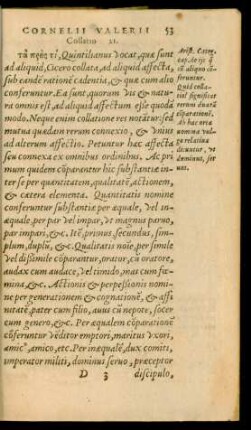 CORNELII VALERII 53
Collatio 15.
τὰ πρός τί, Quintilianus vocat, quæ sunt
ad aliquid, Cicero collata, ad aliquid affecta,
sub eandē rationē cadentia, & quæ cum alio
conferuntur. Ea sunt, quorum vis & natu
ra omnis est, ad aliquid affectum esse quodā
modo. Neque enim collatione res notātur: sed
mutua quædam rerum connexio, & vnius
ad alterum affectio. Petuntur hæc affecta
seu connexa ex omnibus ordinibus. Ac pri
mum quidem cōparantur hic substantiæ in
ter se per quantitatem, qualitatē, actionem,
& cætera elementa. Quantitatis nomine
conferuntur substantiæ per æquale, vel in-
æquale, per par vel impar, vt magnus paruo,
par impari, &c. Itē primus secundus, sim-
plum, duplū, &c. Qualitatis noīe, per simile
vel dissimile cōparantur, orator, cū oratore,
audax cum audace, vel timido, mas cum fœ-
mina, &c. Actionis & perpessionis nomi-
ne per generationem & cognationē, & affi
nitatē, pater cum filio, auus cū nepote, socer
cum genero, &c. Per æqualem cōparationē
cōferuntur vēditor emptori, maritus vxori,
amic⁹ amico, etc. Per inæqualē, dux comiti,
imperator militi, dominus seruo, præceptor
D 3 discipulo,
Arist. Categ.
cap. de iis q̄
ad aliquid cō
feruntur.
Quid colla-
tio? significat
rerum duarū
cōparationē.
Ab hac vera
nomina vul-
go relatiua
dicuntur, vt
dominus, ser
uus.